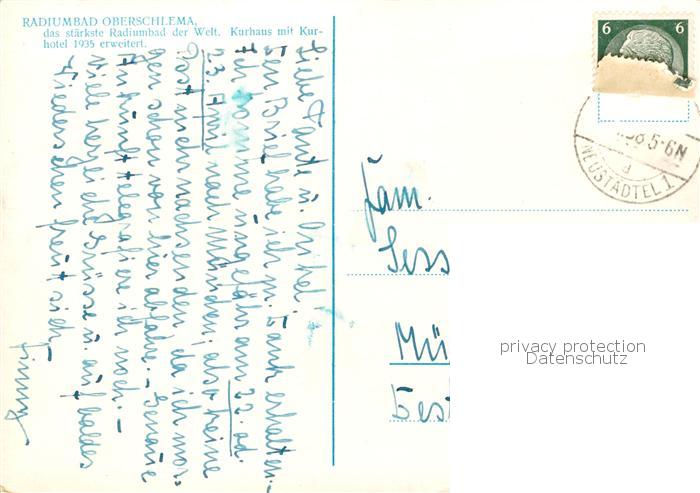 RADIUMBAD OBERSCHLEMA,
das stärkste Radiumbad der Welt. Kurhaus mit Kur-
hotel 1935 erweitert.
Liebe Tante u. Onkel!
Den Brief habe ich m. Dank erhalten.
Ich komme ungefähr am 22. od.
23. April nach München, also keine
Post mehr nachsenden, da ich mor-
gen schon von hier abfahre. - Genaue
Ankunft telegrafiere ich noch. -
Viele herzliche Grüsse u. auf baldes
Wiedersehen freut sich
6 6
5-6N
d
NEUSTÄDTEL 1
Fam.
Sess
Mü
privacy protection
Datenschutz